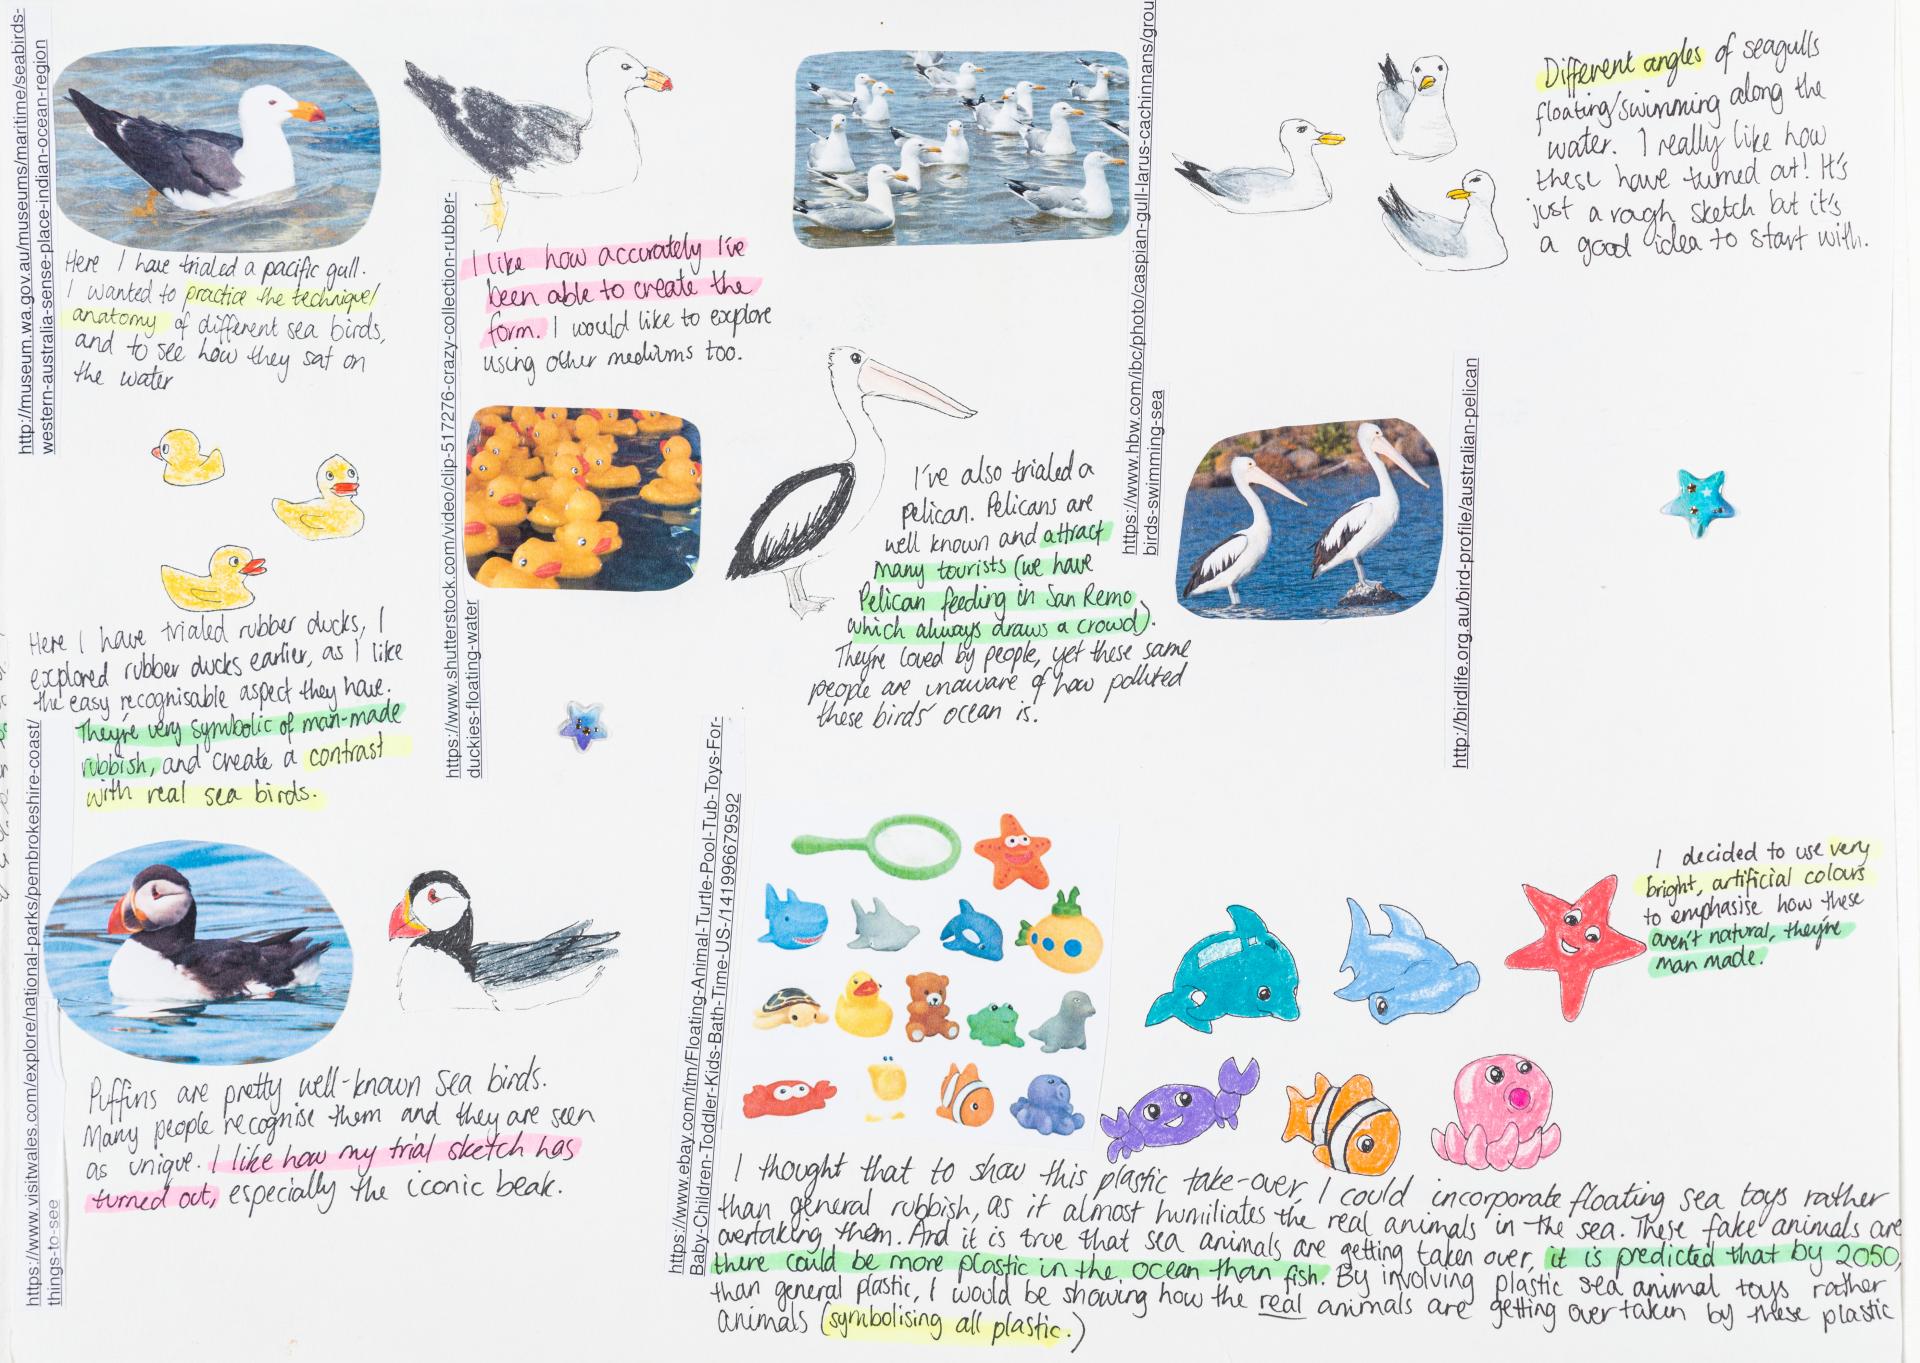 http://museum.wa.gov.au/museums/maritime/seabirds-
western-australia-sense-place-indian-ocean-region
Here I have trialed a pacific gull.
I wanted to practice the technique/
anatomy of different sea birds,
and to see how they sat on
the water
I like how accurately I've
been able to create the
form. I would like to explore
using other mediums too.
https://www.shutterstock.com/video/clip-517276-crazy-collection-rubber-
duckies-floating-water
https://www.hbw.com/ibc/photo/caspian-gull-larus-cachinnans/grou
birds-swimming-sea
Different angles of seagulls
floating/swimming along the
water. I really like how
these have turned out! It's
just a rough sketch but it's
a good idea to start with.
Here I have trialed rubber ducks, I
explored rubber ducks earlier, as I like
the easy recognisable aspect they have.
They're very symbolic of man-made
rubbish, and create a contrast
with real sea birds.
I've also trialed a
pelican. Pelicans are
well known and attract
many tourists (we have
Pelican feeding in San Remo
which always draws a crowd).
They're loved by people, yet these same
people are unaware of how polluted
these birds' ocean is.
http://birdlife.org.au/bird-profile/australian-pelican
https://www.visitwales.com/explore/national-parks/pembrokeshire-coast/
things-to-see
Puffins are pretty well-known sea birds.
Many people recognise them and they are seen
as unique. I like how my trial sketch has
turned out, especially the iconic beak.
https://www.ebay.com/itm/Floating-Animal-Turtle-Pool-Tub-Toys-For-
Baby-Children-Toddler-Kids-Bath-Time-US-/141996679592
I decided to use very
bright, artificial colours
to emphasise how these
aren't natural, they're
man made.
I thought that to show this plastic take-over, I could incorporate floating sea toys rather
than general rubbish, as it almost humiliates the real animals in the sea. These fake animals are
overtaking them. And it is true that sea animals are getting taken over, it is predicted that by 2050,
there could be more plastic in the ocean than fish. By involving plastic sea animal toys rather
than general plastic, I would be showing how the real animals are getting overtaken by these plastic
animals (symbolising all plastic.)